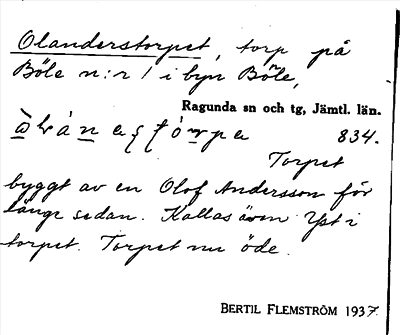 Olanderstorpet, torp på
Böle n:r 1 i byn Böle,
Ragunda sn och tg, Jämtl. län.
834.
Torpet
byggt av en Olof Andersson för
länge sedan. Kallas även Yst i
torpet. Torpet nu öde.
BERTIL FLEMSTRÖM 1937.